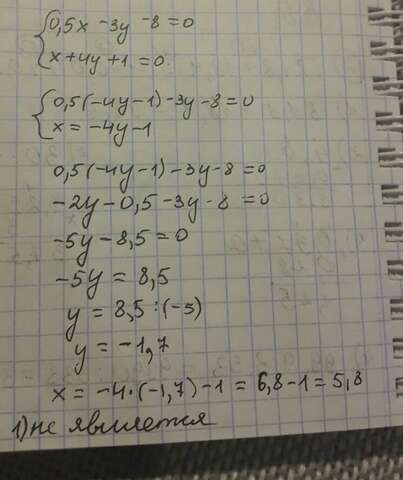 0,5x - 3y - 8 = 0
x + 4y + 1 = 0
0,5(-4y-1) - 3y - 8 = 0
x = -4y - 1
0,5(-4y-1) - 3y - 8 = 0
-2y - 0,5 - 3y - 8 = 0
-5y - 8,5 = 0
-5y = 8,5
y = 8,5 : (-5)
y = -1,7
x = -4·(-1,7) - 1 = 6,8 - 1 = 5,8
1) не является